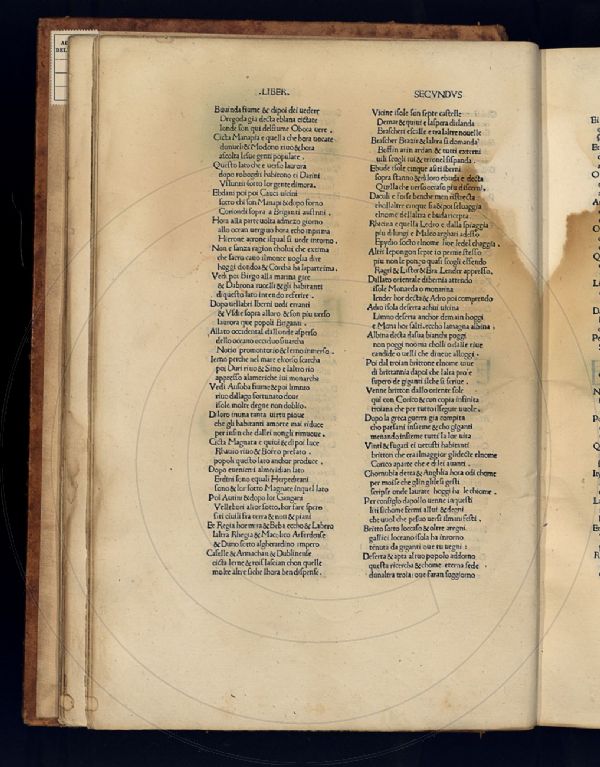 .LIBER.
Buuinda fiume & dipoi dei uedere
Dregoda gia decta eblana cictate
londe son qui delfiume Oboca uere.
Cicta Manapia e quella che hora uocate
donueli & Modono riuo & hora
ascolta lesue genti populare.
Questo lato che e uerso laurora
dopo roboghi habitono ei Darini
Vsluntii sotto lor gente dimora.
Ebdani poi poi Cauci uicini
sotto chi son Manapi & dopo forno
Coriondi sopra a Briganti assetini.
Hora alla parte uolta admezo giorno
allo ocean uergiuo hora echo inprima
Hierone acrone isqual si uede intorno.
Non e sanza ragion cholui che extima
che sacro cauo ilmonte uoglia dire
hoggi dondoa & Corcha ha lapartesima.
Vedi poi Birgo alla marina gire
& Dabrona rucelli & gli habitanti
di questo lato intendo referire.
Dopo uellabri Iberni uedi erranti
& Vsdie sopra alloro & son piu uerso
laurora que popoli Briganti.
Allato occidental dallonde asperso
dello oceano occiduo si uarcha
Notio promontorio & lerno inmerso.
Ierno perche nel mare elcorso scarcha
poi Duri riuo & Sino e laltro rio
appresso alameriche iui monarcha
Vedi Ausoba fiume & poi limnio
riuo dallago fortunato doue
isole molte degne non doblio.
Diloro inuna tanta uirtu pioue
che gli habitanti amorte mai riduce
per infin che dallei nongli rimuoue.
Cicta Magnata e quiui & dipoi luce
Rhauio riuo & Boreo presato
popoli questo lato anchor produce.
Dopo euenienti almeridian lato
Erdini sono equali Herpedirani
sono & lor sotto Magnate inquel lato
Poi Autini & dopo lor Gangani
Vellebori alior sotto, hor fare spero
siti ciuili fra terra & noti & piani
Et Regia horentra & Beba eccho & Labero
laltra Rhegia & Macolico Asserdense
& Duno sotto algherardino impero
Caselle & Armachan & Dublinense
cicta Ierne & noi lascian chon quelle
molte altre siche lhora ben dispense.
SECVNDVS
Vicine isole son septe castelle
Demar & quiui e laspera dirlanda
Brascheri escalle e tra laltre nouelle
Brascher Brazir & laltra si domanda
Boffin arin ardan & tutti externi
uili scogli iui & trionel sispanda.
Ebude isole cinque assetiberni
sopra stanno & di loro ebuda e decta
Quella che uerso occaso piu discerni.
Daculi e forse benche men ristrecta
echollaltre cinque sia & poi seluaggia
elnome dellaltra e buda ricepta
Rhicina e quella Ledro e dalla spiaggia
piu dilungi e Maleo arghari addosso
Epydio socto elnome suor sedel chaggia.
Altri Iepongon sepre io permestesso
piu non le pongo quasi scogli essendo
Ragri & Lister & Bra Lender appresso.
Dallato orientale dibernia attendo
isole Monarda o monarina
lender hor decta & Adro poi comprendo
Adro isola deserta achui uicina
Limno deserta anchor demain hoggi
e Mona hor saltei, eccho lamagna albina.
Albina decta dasua bianchi poggi
non poggi noma cholli o dalle riue
candide o uelli che diueue alloggi.
Poi dal troian brittone elnome uiue
di brittannia dapoi che lalta pro'e
supero de giganti ilche si scriue.
Venne britton dallo oriente sole
qui con Corico & con copia insinita
troiana che per tutto ilsegue uuole.
Dopo la greca guerra gia compita
cho parsani insieme & cho giganti
menando insieme tutta la lor uita
Vinti & fugati ei uetusti habitanti
britton che era ilmaggior glidecte elnome
Corico aparte che e di lei auanti.
Chornubia detta & Anghlia hora odi chome
per moise che glin ghiesi gesti
scripse onde laurate hoggi ha le chiome.
Per consiglio dapollo uenne in questi
liti si chome fermi alluti & degni
che uuol che pesuo uersi si manifesti.
Britto sotto locaso & oltre aregni
gallici loceano isola ha intorno
tenuta da giganti oue tu uegni:
Deserta & apta altuo popolo addorno
questa ricercha & chome eterna sede
dunaltra troia: que faran soggiorno